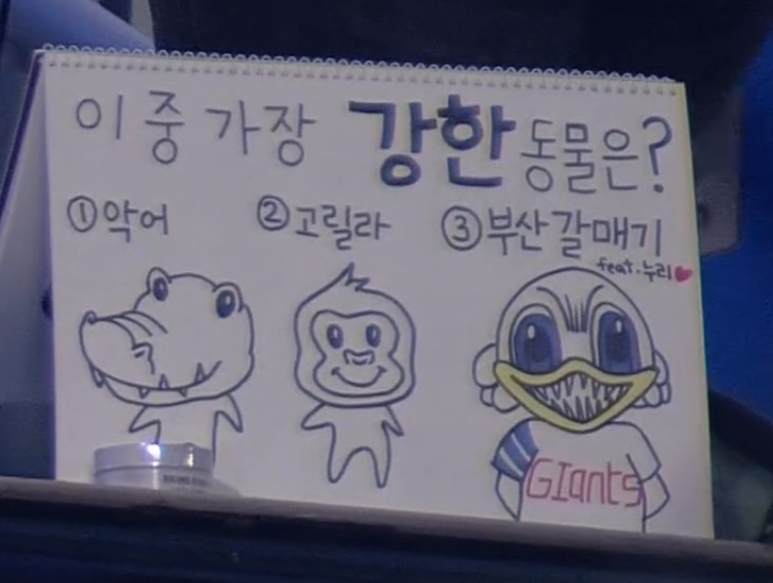 이 중 가장 강한 동물은?
①악어 ②고릴라 ③부산갈매기
feat.누리♥
GIants